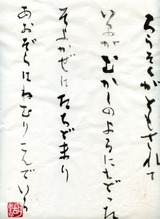 ろうそくがともされて
いまがむかしのようにもどった
そよかぜはたちどまり
あおぞらはねむりこんでいる